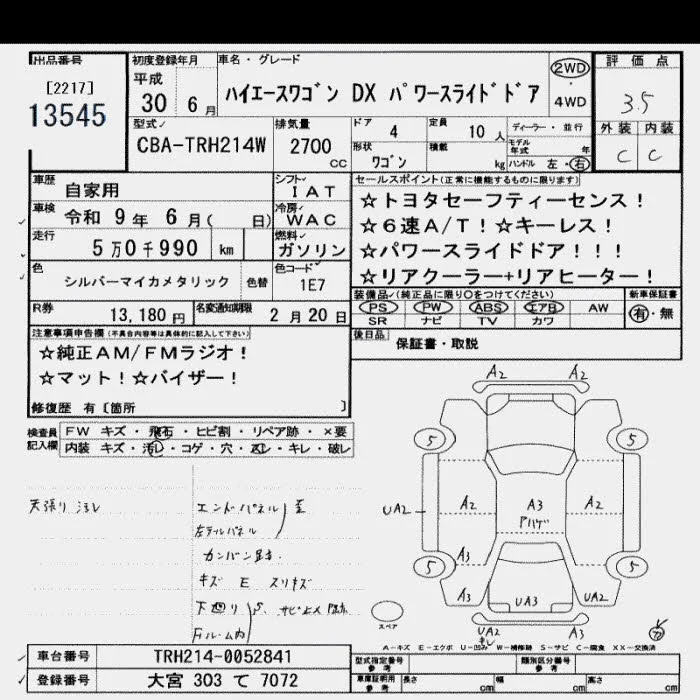 出品番号
[2217]
13545
初度登録年月
平成
30 6月
車名・グレード
ハイエースワゴン DX パワースライドドア
2WD
・
4WD
評価点
3.5
外装 内装
C C
型式✓
CBA-TRH214W
排気量
2700
cc
ドア 4
定員 10 人
ディーラー・並行
形状 ワゴン
積載 kg
モデル年式 年
ハンドル 左・右
車歴 自家用
シフト✓
IAT
車検 令和 9年 6月( 日)
冷房✓
WAC
走行 5万0千990 km
燃料✓
ガソリン
色 シルバーマイカメタリック
色替
色コード✓
1E7
R券 13,180 円
名変通知期限 2月20日
セールスポイント(正常に機能するものに限ります)
☆トヨタセーフティーセンス!
☆6速A/T!☆キーレス!
☆パワースライドドア!!!
☆リアクーラー+リアヒーター!
装備品✓(純正品に限り○をつけてください)
PS PW ABS エアB AW
SR ナビ TV カワ
新車保証書
有・無
後日品 保証書・取説
注意事項申告欄(不具合内容等は具体的に記入して下さい)
☆純正AM/FMラジオ!
☆マット!☆バイザー!
修復歴 有〔箇所 〕
検査員記入欄
FW キズ・飛石・ヒビ割・リペア跡・×要
内装 キズ・汚レ・コゲ・穴・スレ・キレ・破レ
天張り汚レ
エンドパネル
左テールパネル
キズ E スリキズ
下廻り S
Fルーム内
A2 A2
5 5
UA2 A2 A3 A2
アハゲ
A3
5 5
A3 UA3 UA2
スペア
UA2 A3
A-キズ E-エクボ U-凹み W-補修跡 S-サビ C-腐食 XX-交換済
車台番号 TRH214-0052841
登録番号 大宮 303 て 7072
型式指定番号
参考
類別区分番号
参考
車庫証明用
参考
長さ cm 幅 cm 高さ cm